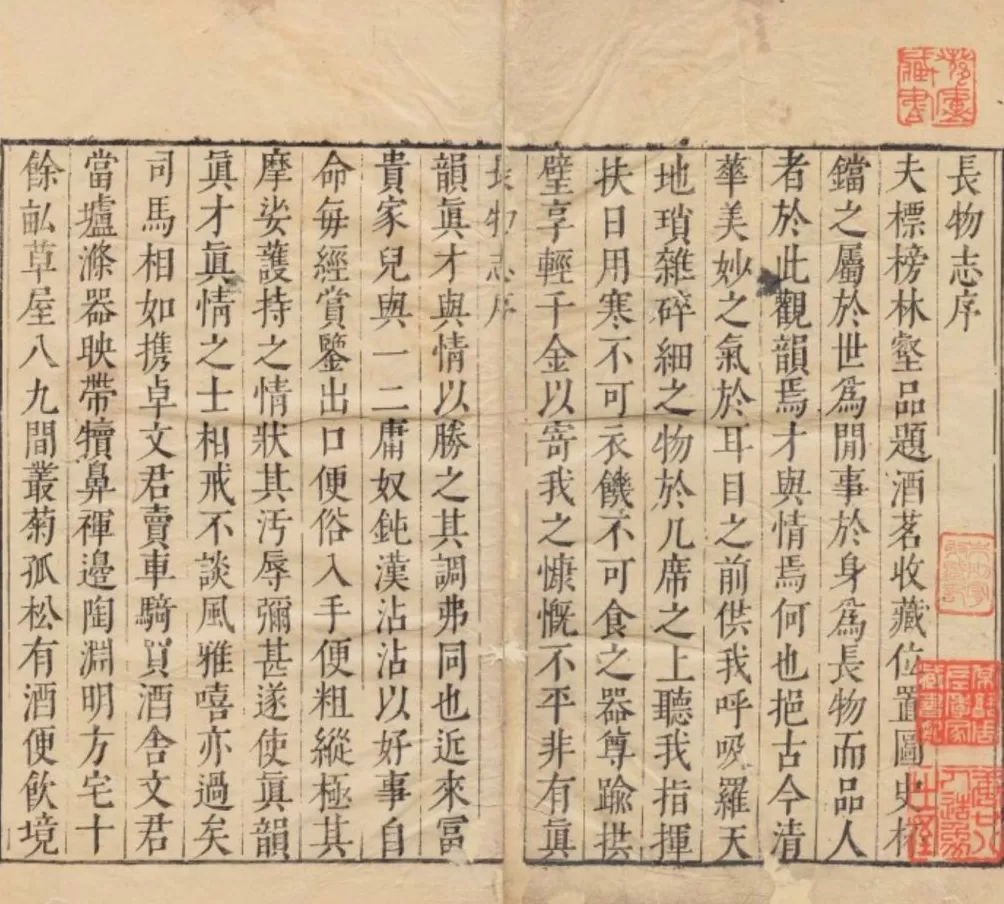 長物志序
夫標榜林壑品題酒茗收藏位置圖史杯
鐺之屬於世爲閒事於身爲長物而品人
者於此觀韻焉才與情焉何也挹古今清
華美妙之氣於耳目之前供我呼吸羅天
地瑣雜碎細之物於几席之上聽我指揮
挟日用寒不可衣饑不可食之器尊踰拱
璧享輕千金以寄我之慷慨不平非有眞
長物志序
韻眞才與情以勝之其調弗同也近來冨
貴家兒與一二庸奴鈍漢沾沾以好事自
命每經賞鑒出口便俗入手便粗縱極其
摩娑護持之情狀其汚辱彌甚遂使眞韻
眞才眞情之士相戒不談風雅嘻亦過矣
司馬相如携卓文君賣車騎買酒舍文君
當壚滌器映帶犢鼻褌邉陶淵明方宅十
餘畝草屋八九間叢菊孤松有酒便飲境
藏書